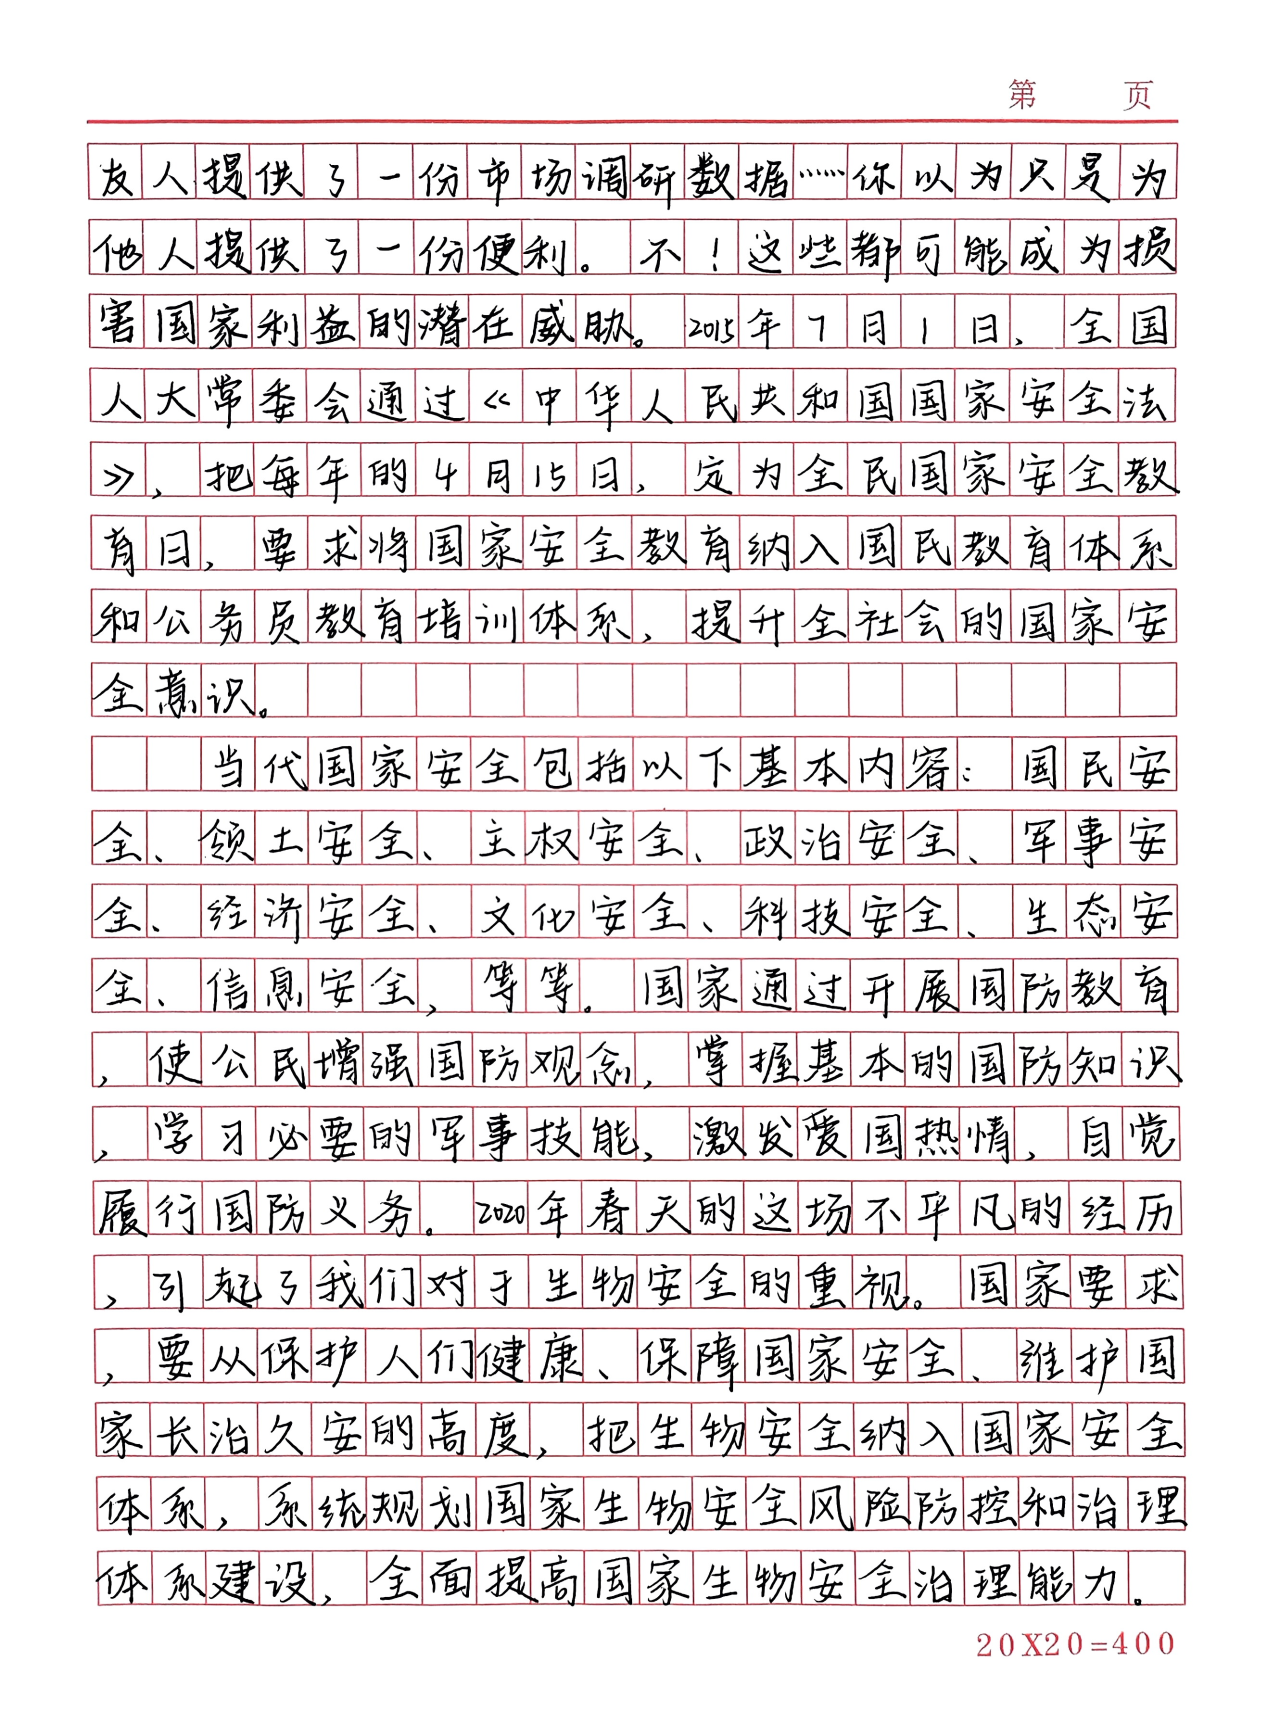 第 页
友人提供了一份市场调研数据……你以为只是为
他人提供了一份便利。不！这些都可能成为损
害国家利益的潜在威胁。2015年7月1日，全国
人大常委会通过《中华人民共和国国家安全法
》，把每年的4月15日，定为全民国家安全教
育日，要求将国家安全教育纳入国民教育体系
和公务员教育培训体系，提升全社会的国家安
全意识。
当代国家安全包括以下基本内容：国民安
全、领土安全、主权安全、政治安全、军事安
全、经济安全、文化安全、科技安全、生态安
全、信息安全，等等。国家通过开展国防教育
，使公民增强国防观念，掌握基本的国防知识
，学习必要的军事技能，激发爱国热情，自觉
履行国防义务。2020年春天的这场不平凡的经历
，引起了我们对于生物安全的重视。国家要求
，要从保护人们健康、保障国家安全、维护国
家长治久安的高度，把生物安全纳入国家安全
体系，系统规划国家生物安全风险防控和治理
体系建设，全面提高国家生物安全治理能力。
20X20=400